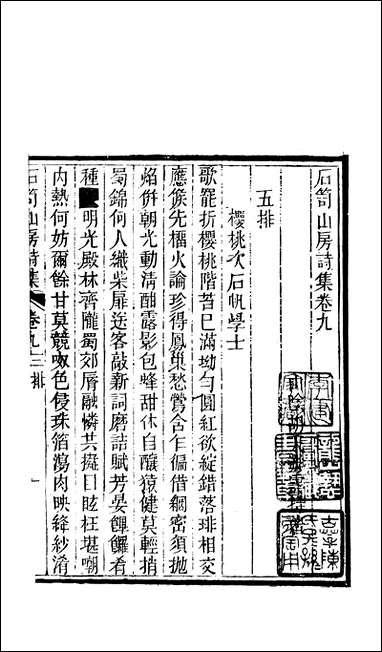 石笥山房詩集卷九
五排
櫻桃次石帆學士
歌罷折櫻桃階苔巳滿坳勻圓紅欲綻錯落琲相交
應候先榴火論珍得鳳巢愁鶯含乍偏借綱密須拋
焰併朝光動淸酣露影包蜂甜休自釀猿健莫輕捎
蜀錦何人織柴扉迓客敲新詞磨詰賦芳宴饆饠肴
種 明光殿林齊隴蜀郊脣融憐共擬目眩枉堪嘲
内熱何妨爾餘甘莫競呶色侵珠箔瀉肉映絳紗淆
石笥山房詩集 卷九 三排 一